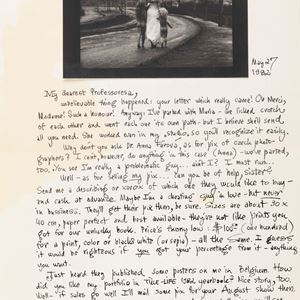 May 27
1982
My dearest Professoressa,
unbelievable thing happened: your letter which really came! Oh Mercy,
Madame! Such a honour. Anyway: I've parted with Maria - we licked crotch
of each other and went each one its own path - but I believe she'll send
all you need. She worked even in my studio, so you'll recognize it easily.
Why don't you ask Dr. Anna Farová, as for pix of czech photo-
graphers? I can't, however, do anything in this case (Anna) - we've parted,
too. You see I'm really a problematic guy... ain't I? I must run.
Well - as for selling my pix... Can you be of help, sister?
Send me a describing or xerox of which one they would like to buy -
and cash at advance. Maybe I'm a cheating guy in love - but never
in business. They'll get their pix then, be sure. Sizes are about 30 x
40 cm, paper perfect and best available - they're not like prints you
got for our unlucky book. Price's money low: $100- (one hundred)
for a print, color or black & white (or sepia) - all the same. I guess
it would be righteous if you got your percentage from it - anything
you want.
Just heard they published some posters on me in Belgium. How
did you like my portfolio in TIME-LIFE 1982 yearbook? Nice story, too.
Well - if sales go well I'll mail some pix for your August show. This